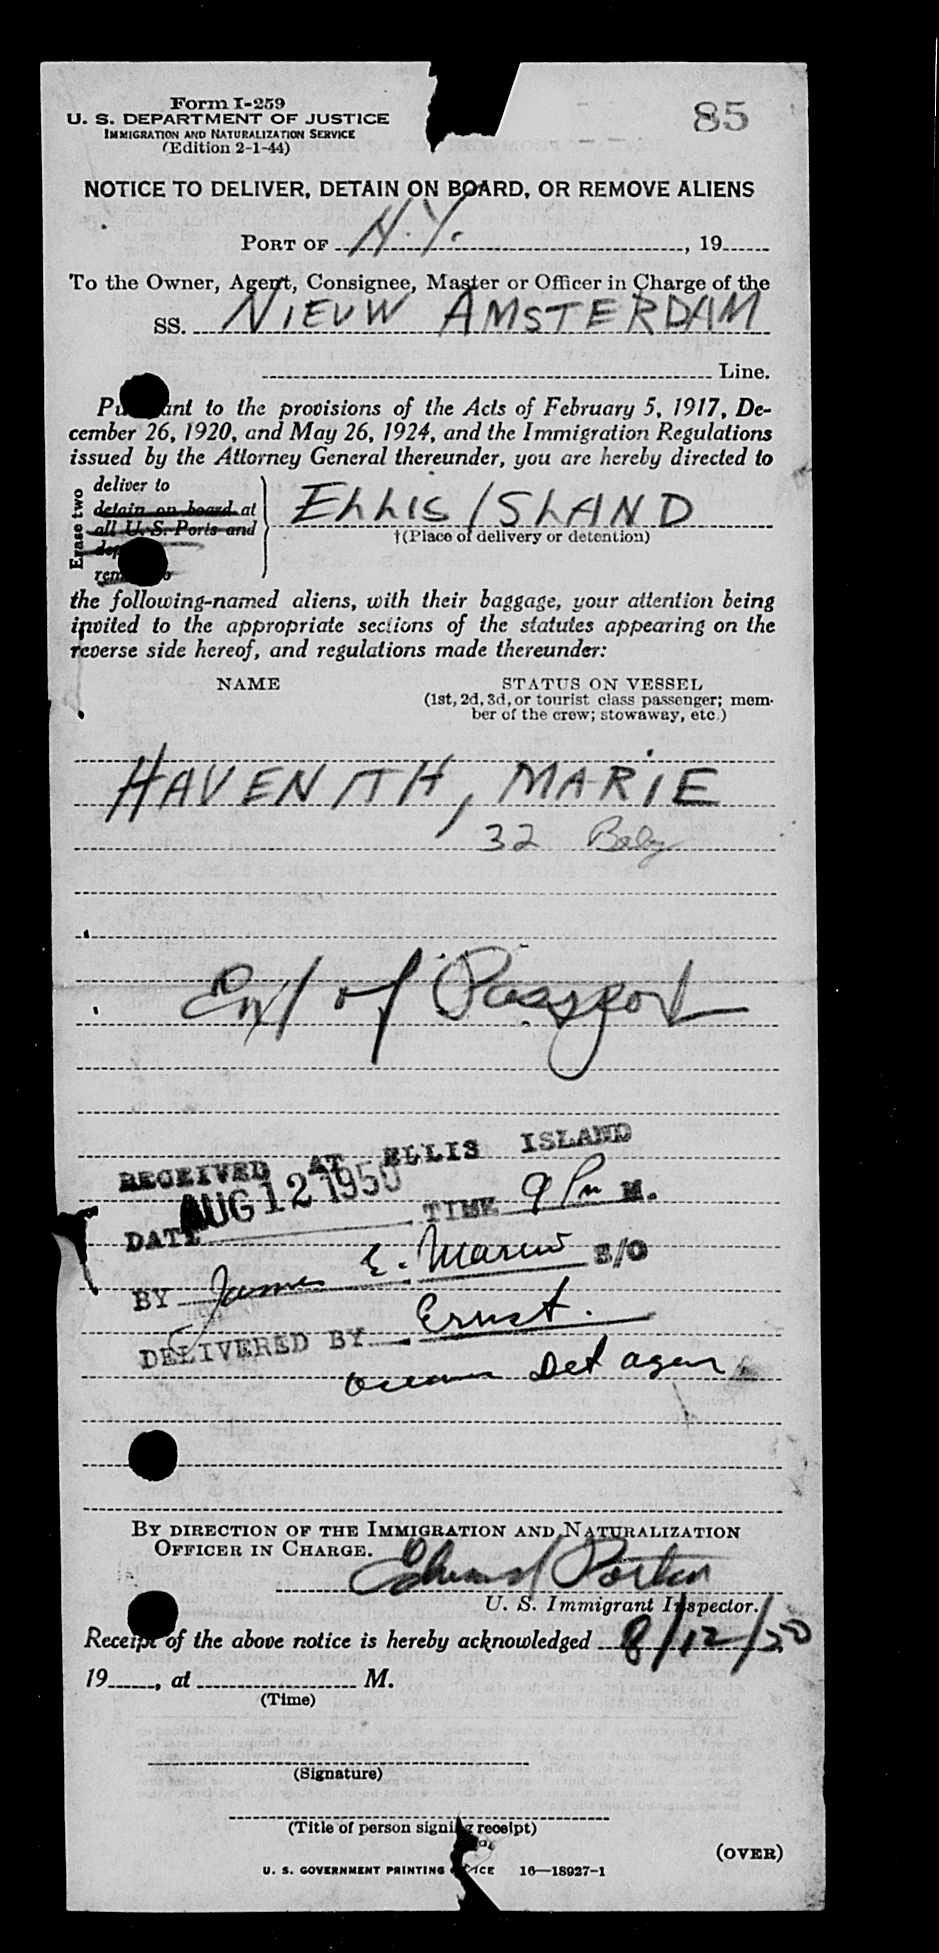 Form I-259
U. S. DEPARTMENT OF JUSTICE
IMMIGRATION AND NATURALIZATION SERVICE
(Edition 2-1-44)
85
NOTICE TO DELIVER, DETAIN ON BOARD, OR REMOVE ALIENS
PORT OF N.Y. , 19
To the Owner, Agent, Consignee, Master or Officer in Charge of the
SS. NIEUW AMSTERDAM
Line.
Pursuant to the provisions of the Acts of February 5, 1917, De-
cember 26, 1920, and May 26, 1924, and the Immigration Regulations
issued by the Attorney General thereunder, you are hereby directed to
Erase two
deliver to
detain on board at
all U. S. Ports and
ELLIS ISLAND
†(Place of delivery or detention)
the following-named aliens, with their baggage, your attention being
invited to the appropriate sections of the statutes appearing on the
reverse side hereof, and regulations made thereunder:
NAME
STATUS ON VESSEL
(1st, 2d, 3d, or tourist class passenger; mem-
ber of the crew; stowaway, etc.)
HAVENITH, MARIE
32 Baby
Ext of Passport
RECEIVED AT ELLIS ISLAND
DATE AUG 12 1950 TIME 9 Pm M.
BY James E. S/O
DELIVERED BY Ernst.
Det agent
BY DIRECTION OF THE IMMIGRATION AND NATURALIZATION
OFFICER IN CHARGE.
Edward
U. S. Immigrant Inspector.
Receipt of the above notice is hereby acknowledged 8/12/50
19 , at M.
(Time)
(Signature)
(Title of person signing receipt)
(OVER)
U. S. GOVERNMENT PRINTING OFFICE 16—18927-1